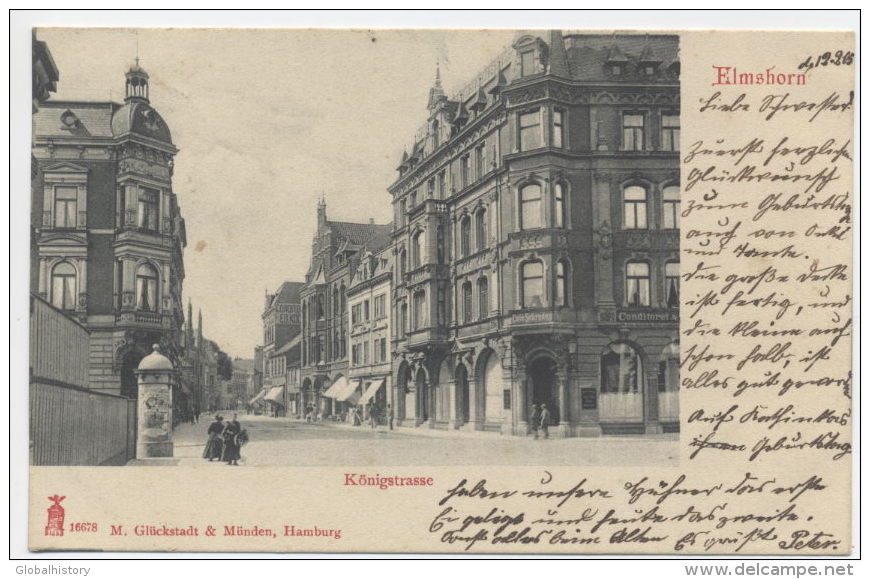 Elmshorn
d, 12.2.03
Liebe Schwester!
Zuerst herzlichen
Glückwunsch
zum Geburtstag
auch von Onkel
und Tante.
Die große Decke
ist fertig, und
die kleine auch
schon halb, ist
alles gut geword
Auf Kathinkas
ihren Geburtstag
haben unsere Hühner das erste
Ei gelegt und heute das zweite.
Sonst alles beim Alten Es grüßt Peter.
Conditorei
Königstrasse
16678 M. Glückstadt & Münden, Hamburg
Globalhistory
www.delcampe.net